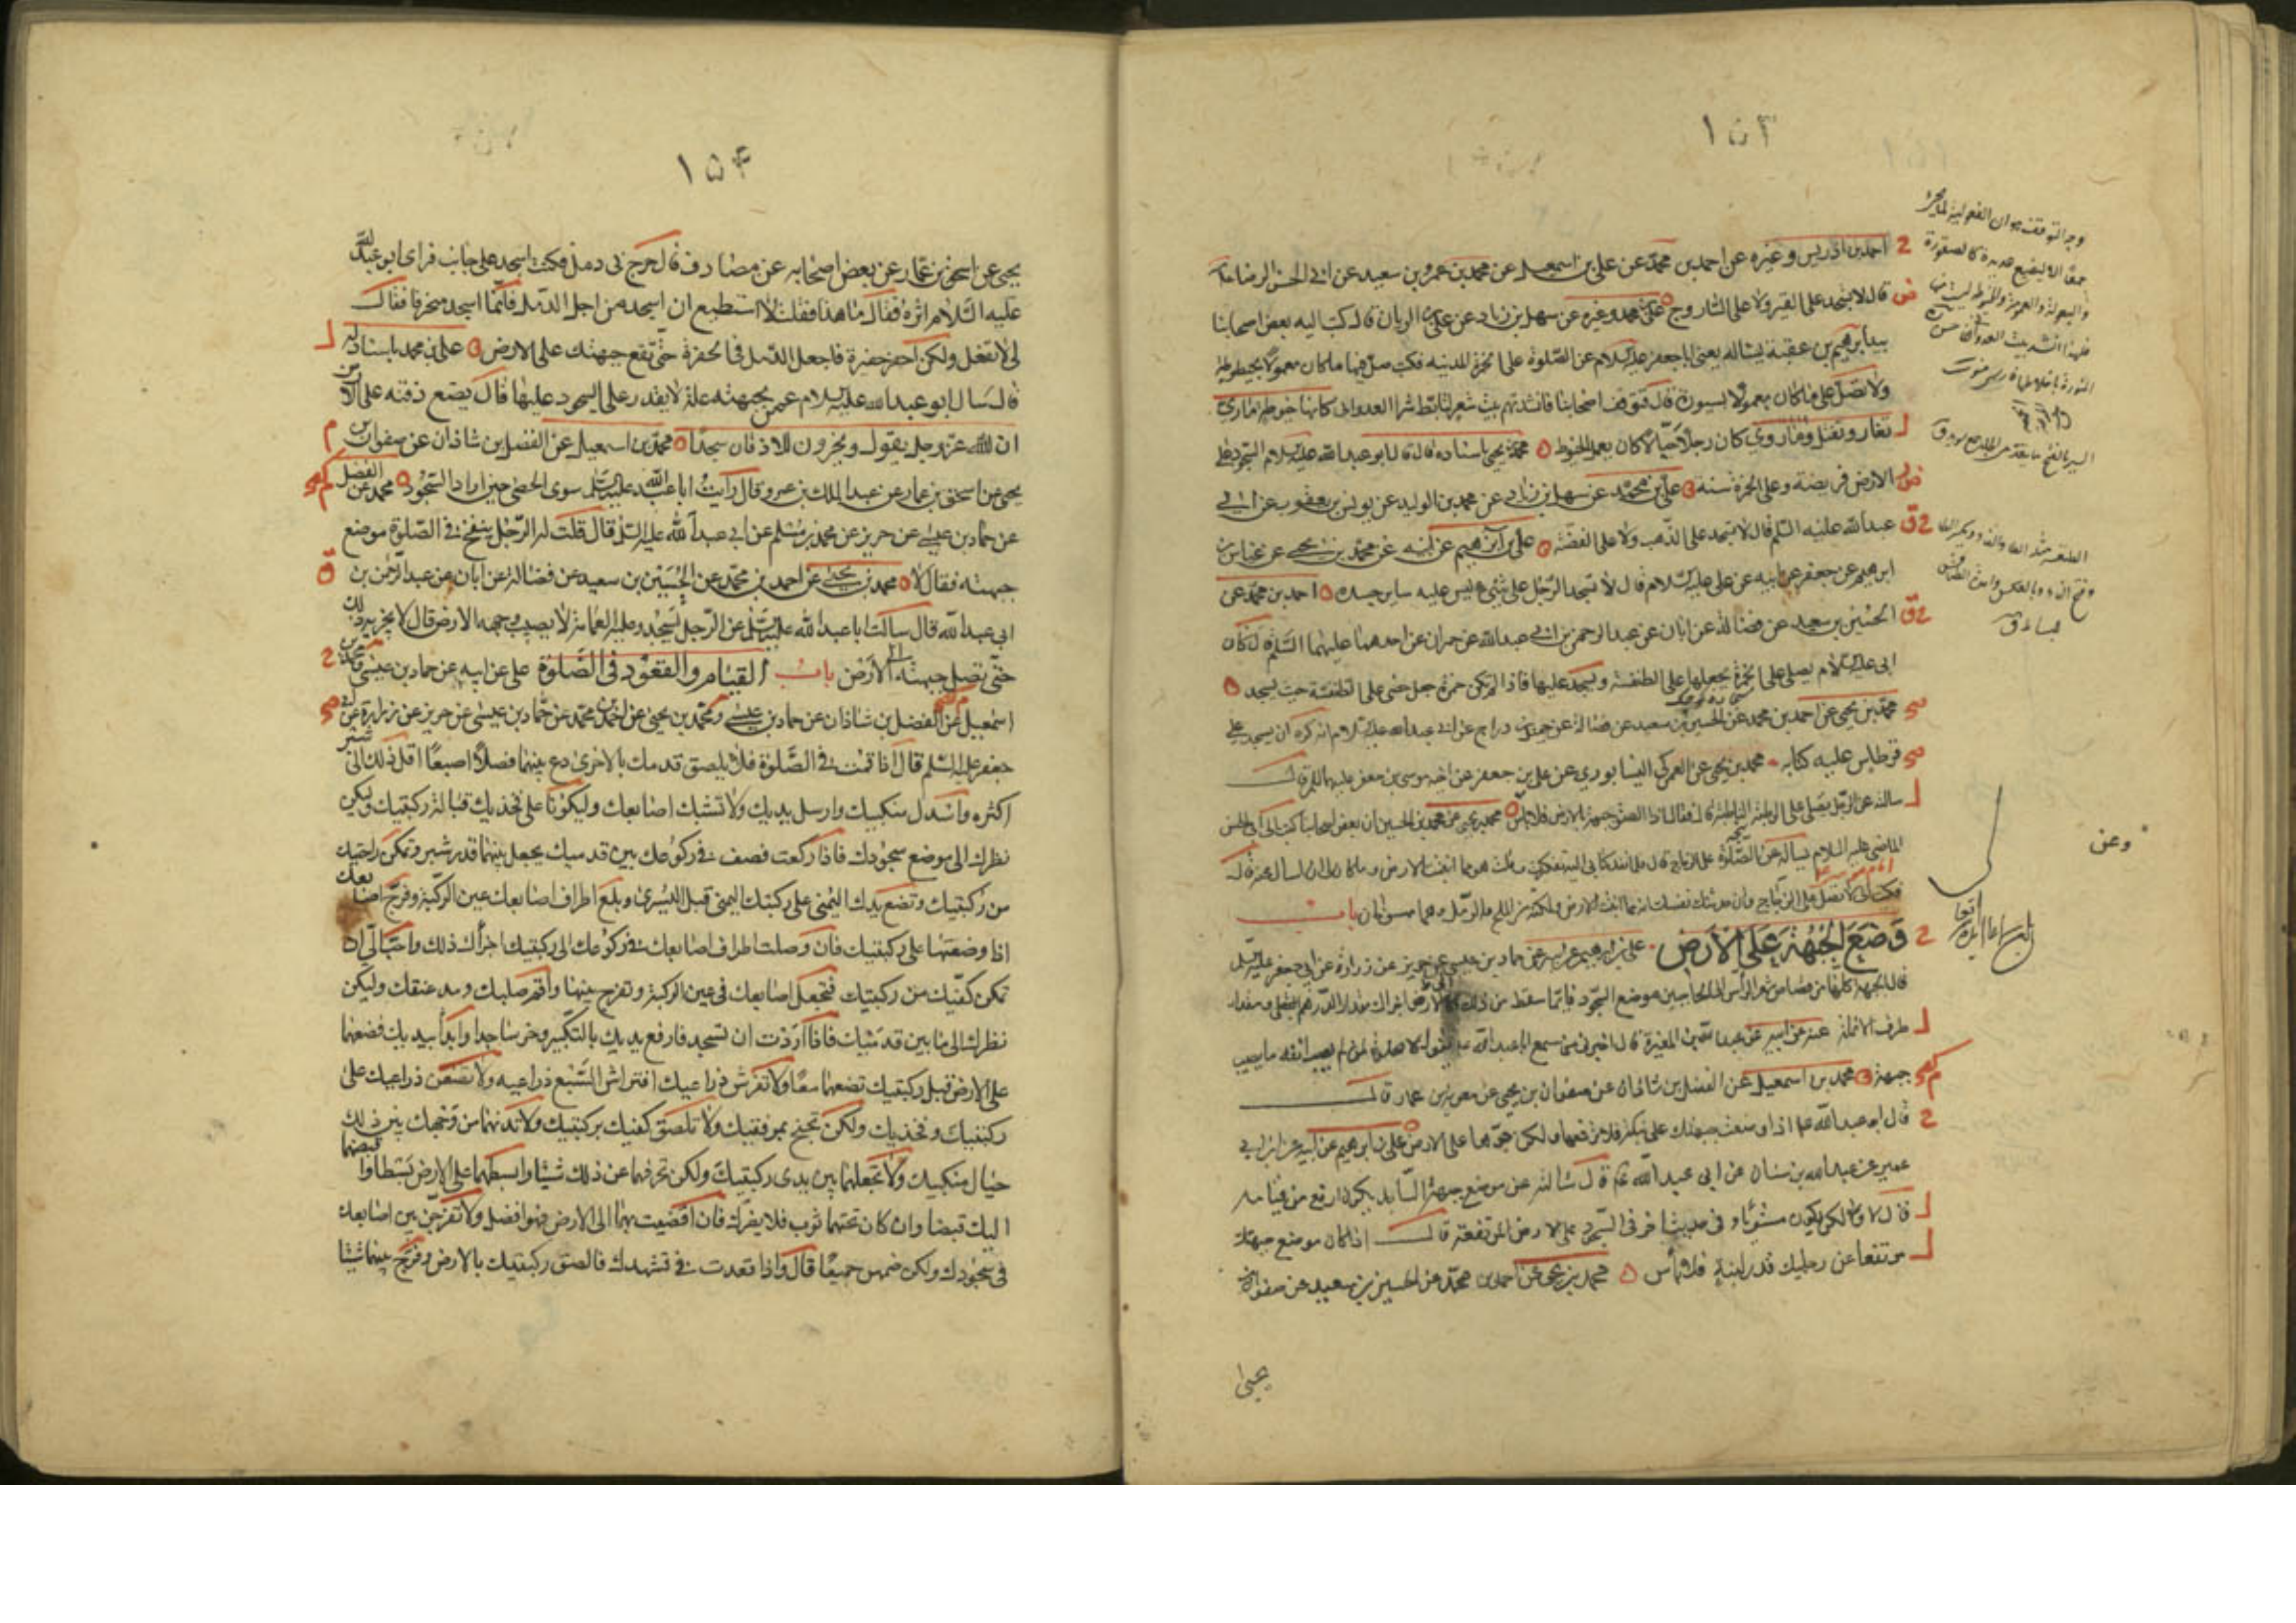 ١٥٣
احمد بن ادريس وغيره عن احمد بن محمد عن علي بن اسمعيل عن محمد بن عمرو بن سعيد عن ابي الحسن الرضا
قال لا تسجد على القير ولا على الصاروج علي بن محمد وغيره عن سهل بن زياد عن علي بن الريان قال كتب اليه بعض اصحابنا
بيد ابرهيم بن عقبة يسأله يعني ابا جعفر عليه السلام عن الصلوة على الخمرة المدنية فكتب صل فيها ما كان معمولا بخيوطة
ولا تصل على ما كان معمولا بسيورة قال فتوقف اصحابنا فانشدتهم بيت شعر لتابط شرا العدواني كانها خيوطة ماري
تغار وتفتل وماري كان رجلا حبالا كان يعمل الخيوط محمد بن يحيى باسناده قال قال ابو عبد الله عليه السلام السجود على
الارض فريضة وعلى الخمرة سنة علي بن محمد عن سهل بن زياد عن محمد بن الوليد عن يونس بن يعقوب عن ابي
عبد الله عليه السلم قال لا تسجد على الذهب ولا على الفضة علي بن ابرهيم عن ابيه عن محمد بن يحيى عن غياث بن
ابرهيم عن جعفر عن ابيه عن علي عليه السلام قال لا تسجد الرجل على شيء ليس عليه ساير جسده احمد بن محمد عن
الحسين بن سعيد عن فضالة عن ابان عن عبد الرحمن بن ابي عبد الله عن حمران عن احدهما عليهما السلم قال كان
ابي عليه السلام يصلي على الخمرة يجعلها على الطنفسة ويسجد عليها فاذا لم تكن خمرة جعل حصى على الطنفسة حيث يسجد
محمد بن يحيى عن احمد بن محمد عن الحسين بن سعيد عن فضالة عن جميل بن دراج عن ابي عبد الله عليه السلام انه كره ان يسجد على
قرطاس عليه كتابه محمد بن يحيى عن العمركي النيسابوري عن علي بن جعفر عن اخيه موسى بن جعفر عليهما السلم قال
سالته عن الرجل يصلي على الرطبة النابتة قال فقال اذا الصق جبهته بالارض فلا باس محمد بن يحيى عن محمد بن الحسين ان بعض اصحابنا كتب الى ابي الحسن
الماضي عليه السلام يسأله عن الصلوة على الزجاج قال فلما نفذ كتابي اليه تفكرت وقلت هو مما انبتت الارض وما كان لي ان اسال عنه قال
فكتب الي لا تصل على الزجاج وان حدثتك نفسك انه مما انبتت الارض ولكنه من الملح والرمل وهما ممسوخان باب
وضع الجبهة على الارض علي بن ابرهيم عن ابيه عن حماد بن عيسى عن حريز عن زرارة عن ابي جعفر عليه السلم
قال الجبهة كلها من قصاص شعر الرأس الى الحاجبين موضع السجود فايما سقط من ذلك الى الارض اجزاك مقدار الدرهم ومقدار
طرف الانملة عنه عن ابيه عن عبد الله بن المغيرة قال اخبرني من سمع ابا عبد الله يقول لا صلوة لمن لم يصب انفه ما يصيب
جبهته محمد بن اسمعيل عن الفضل بن شاذان عن صفوان بن يحيى عن معوية بن عمار قال
قال ابو عبد الله ع اذا وضعت جبهتك على نبكة فلا ترفعها ولكن جرها على الارض علي بن ابرهيم عن ابيه عن ابن ابي
عمير عن عبد الله بن سنان عن ابي عبد الله ع قال سالته عن موضع جبهة الساجد يكون ارفع من قيامه
قال لا ولكن يكون مستويا وفي حديث اخر في السجود على الارض المرتفعة قال اذا كان موضع جبهتك
مرتفعا عن رجليك قدر لبنة فلا بأس محمد بن يحيى عن احمد بن محمد عن الحسين بن سعيد عن صفوان بن
يحيى
وعن
١٥٤
يحيى عن اسحق بن عمار عن بعض اصحابه عن مصادف قال خرج لي دمل فكنت اسجد على جانب فراى ابو عبد الله
عليه السلام اثره فقال ما هذا فقلت لا استطيع ان اسجد من اجل الدمل فانما اسجد منحرفا فقال
لي لا تفعل ولكن احفر حفرة فاجعل الدمل في الحفرة حتى تقع جبهتك على الارض علي بن محمد باسناد له
قال سال ابو عبد الله عليه السلام عمن بجبهته علة لا يقدر على السجود عليها قال يضع ذقنه على الارض
ان الله عز وجل يقول ويخرون للاذقان سجدا محمد بن اسمعيل عن الفضل بن شاذان عن صفوان بن
يحيى عن اسحق بن عمار عن عبد الملك بن عمرو قال رأيت ابا عبد الله عليه السلم سوى الحصى حين اراد السجود محمد عن الفضل
عن حماد بن عيسى عن حريز عن محمد بن مسلم عن ابي عبد الله عليه السلم قال قلت له الرجل ينفخ في الصلوة موضع
جبهته فقال لا محمد بن يحيى عن احمد بن محمد عن الحسين بن سعيد عن فضالة عن ابان عن عبد الرحمن بن
ابي عبد الله قال سالت ابا عبد الله عليه السلم عن الرجل يسجد وعليه العمامة لا يصيب وجهه الارض قال لا يجزيه ذلك
حتى تصل جبهته الى الارض باب القيام والقعود في الصلوة علي عن ابيه عن حماد بن عيسى ومحمد بن
اسمعيل عن الفضل بن شاذان عن حماد بن عيسى ومحمد بن يحيى عن احمد بن محمد عن حماد بن عيسى عن حريز عن زرارة عن ابي
جعفر عليه السلم قال اذا قمت في الصلوة فلا يلصق قدمك بالاخرى دع بينهما فصلا اصبعا اقل ذلك الى شبر
اكثره واسدل منكبيك وارسل يديك ولا تشبك اصابعك وليكونا على فخذيك قبالة ركبتيك وليكن
نظرك الى موضع سجودك فاذا ركعت فصف في ركوعك بين قدميك يجعل بينهما قدر شبر وتمكن راحتيك
من ركبتيك وتضع يدك اليمنى على ركبتك اليمنى قبل اليسرى وبلغ اطراف اصابعك عين الركبة وفرج اصابعك
اذا وضعتها على ركبتيك فان وصلت اطراف اصابعك في ركوعك الى ركبتيك اجزأك ذلك واحب الي ان
تمكن كفيك من ركبتيك فتجعل اصابعك في عين الركبة وتفرج بينها واقم صلبك ومد عنقك وليكن
نظرك الى ما بين قدميك فاذا اردت ان تسجد فارفع يديك بالتكبير وخر ساجدا وابدأ بيديك فضعهما
على الارض قبل ركبتيك تضعهما معا ولا تفترش ذراعيك افتراش السبع ذراعيه ولا تضعن ذراعيك على
ركبتيك وفخذيك ولكن تجنح بمرفقيك ولا تلصق كفيك بركبتيك ولا تدنهما من وجهك بين ذلك
حيال منكبيك ولا تجعلهما بين يدي ركبتيك ولكن تحرفهما عن ذلك شيئا وابسطهما على الارض بسطا واقبضهما
اليك قبضا وان كان تحتهما ثوب فلا يضرك فان افضيت بهما الى الارض فهو افضل ولا تفرجن بين اصابعك
في سجودك ولكن ضمهن جميعا قال واذا قعدت في تشهدك فالصق ركبتيك بالارض وفرج بينهما شيئا